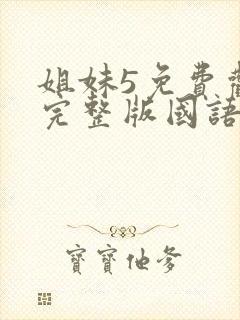 姐妹5免費
完整版國語
寶寶他爹